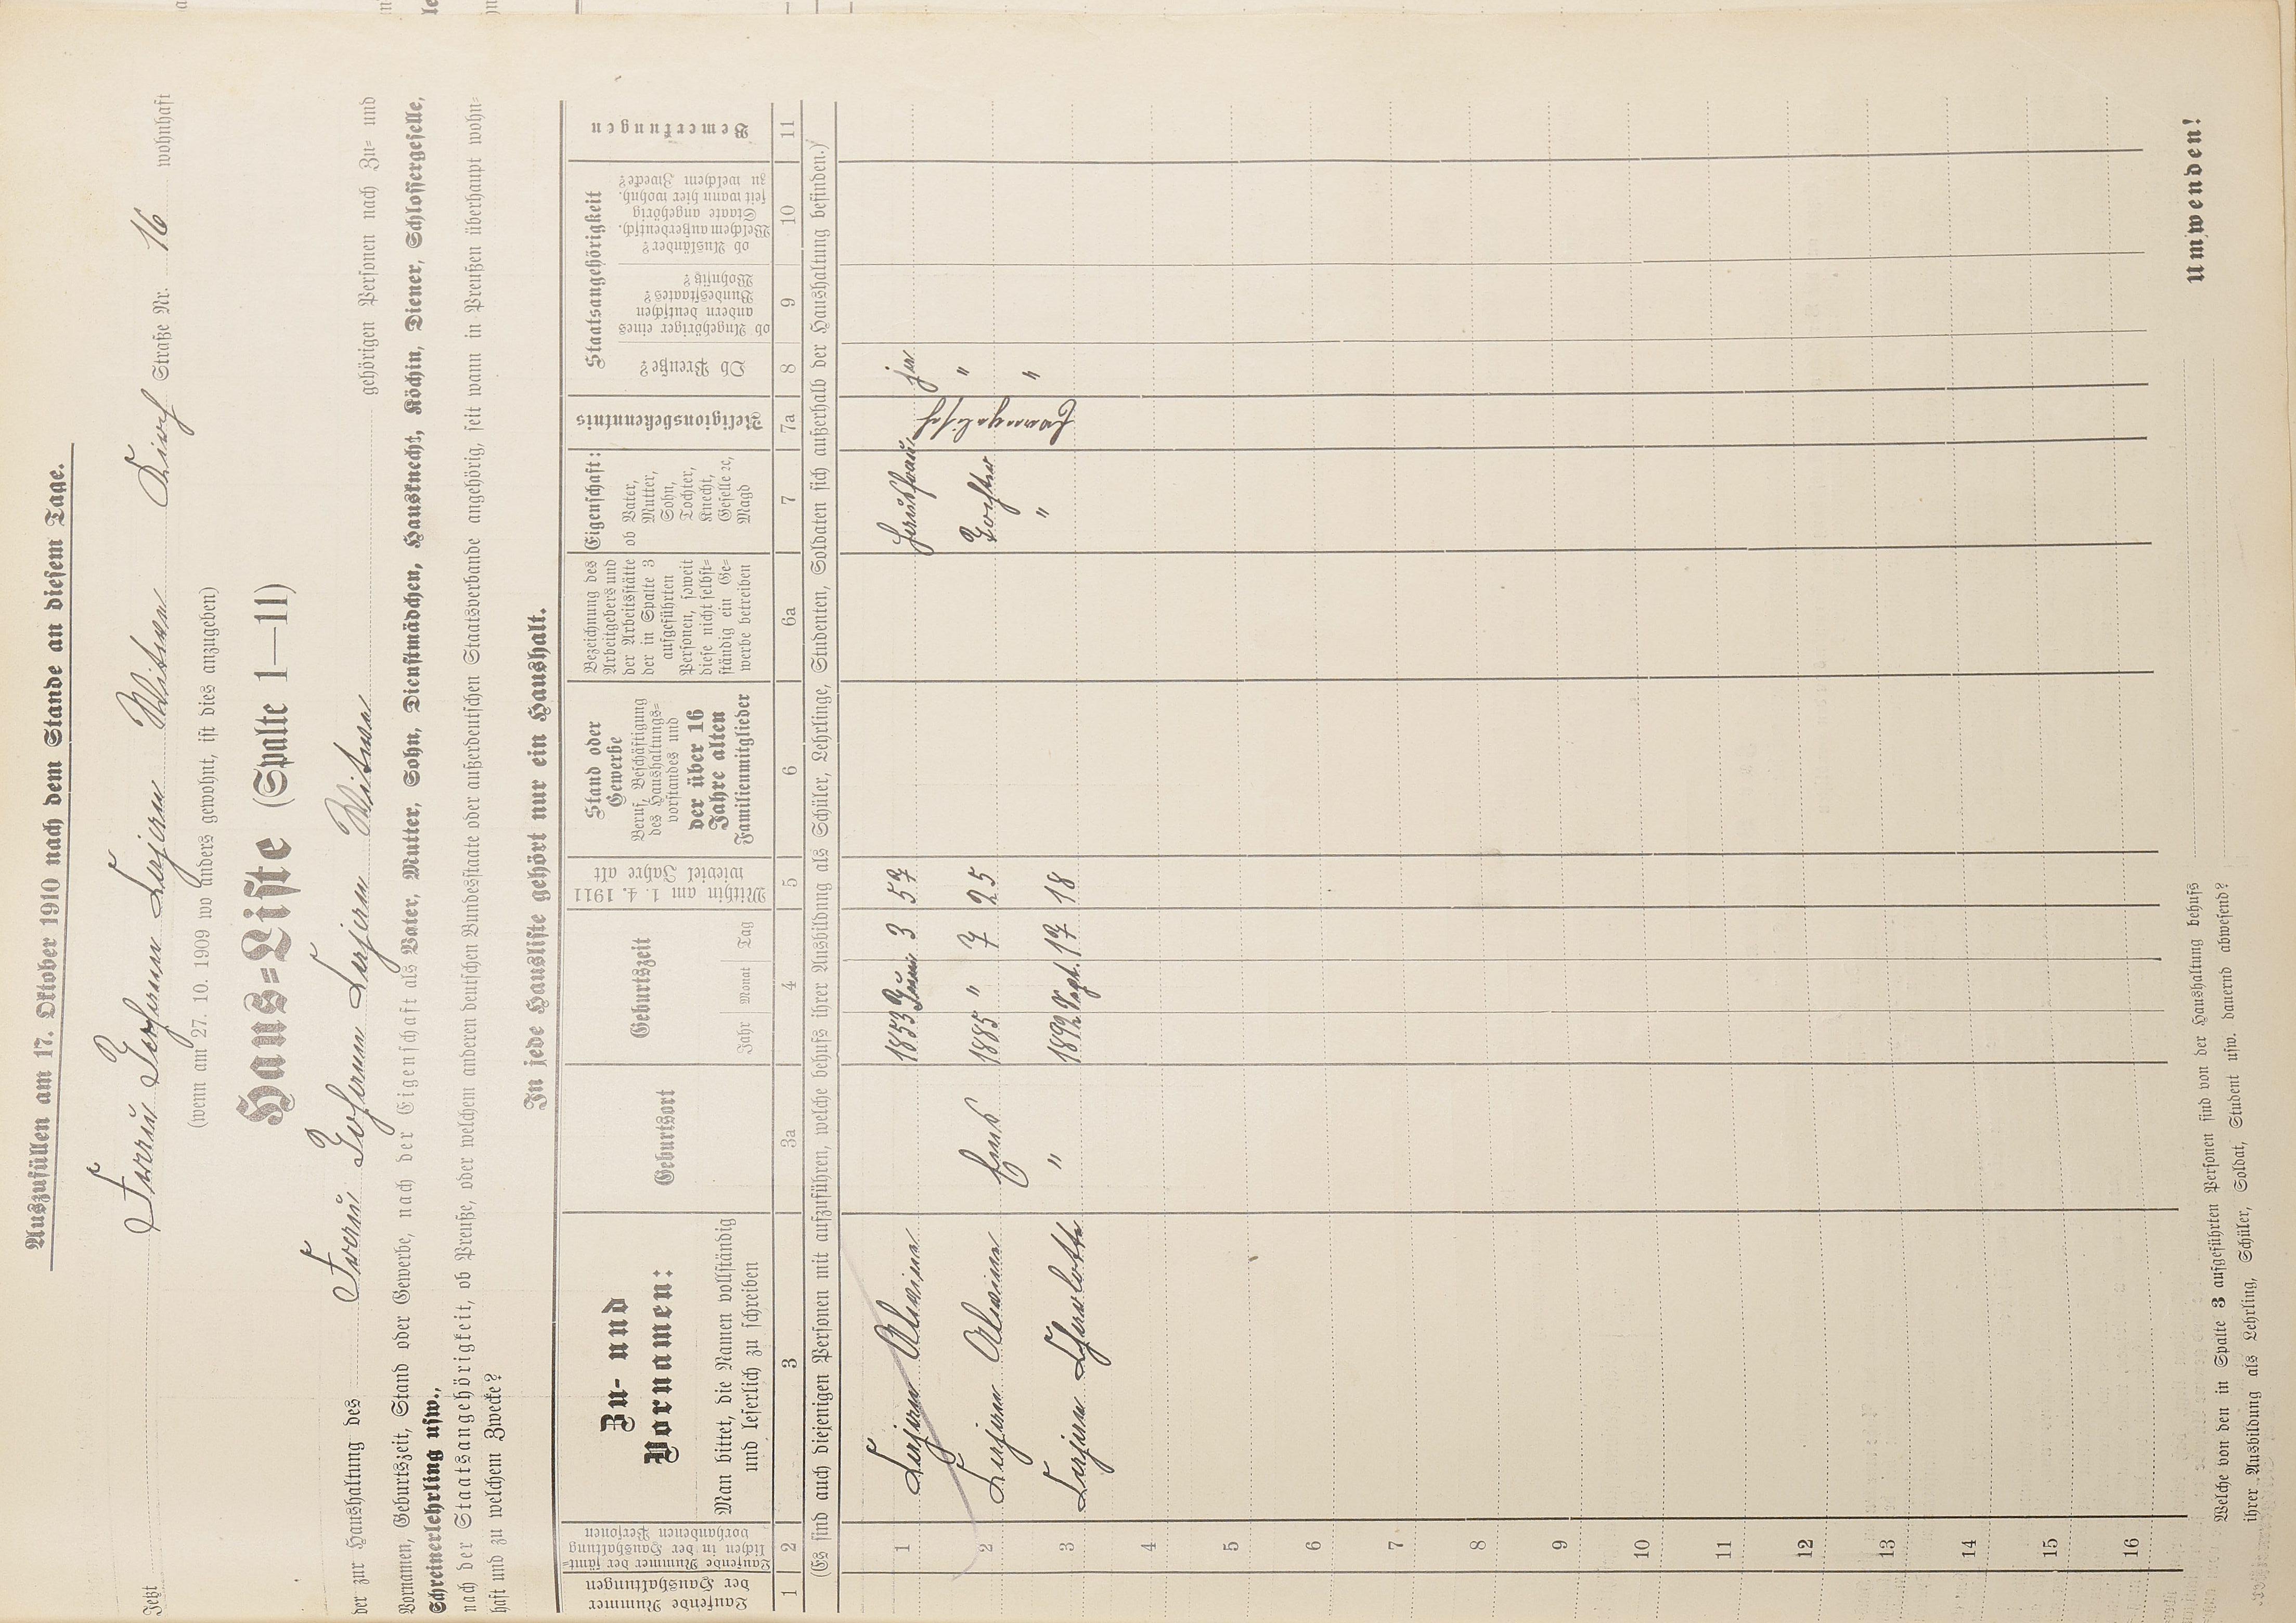 Auszufüllen am 17. Oktober 1910 nach dem Stande an diesem Tage.
Jetzt Frau Johann Witwe Straße Nr. 16 wohnhaft
(wenn am 27. 10. 1909 wo anders gewohnt, ist dies anzugeben)
Haus=Liste (Spalte 1—11)
der zur Haushaltung des Frau Johann Witwe gehörigen Personen nach Zu= und
Vornamen, Geburtszeit, Stand oder Gewerbe, nach der Eigenschaft als Vater, Mutter, Sohn, Dienstmädchen, Hausknecht, Köchin, Diener, Schlossergeselle,
Schreinerlehrling usw.,
nach der Staatsangehörigkeit, ob Preuße, oder welchem anderen deutschen Bundesstaate oder außerdeutschen Staatsverbande angehörig, seit wann in Preußen überhaupt wohn=
haft und zu welchem Zwecke?
In jede Hausliste gehört nur ein Haushalt.
Laufende Nummer
der Haushaltungen
Laufende Nummer der sämt=
lichen in der Haushaltung
vorhandenen Personen
Zu- und
Vornamen:
Man bittet, die Namen vollständig
und leserlich zu schreiben
Geburtsort
Geburtszeit
Jahr Monat Tag
Mithin am 1. 4. 1911
wieviel Jahre alt
Stand oder
Gewerbe
Beruf, Beschäftigung
des Haushaltungs=
vorstandes und
der über 16
Jahre alten
Familienmitglieder
Bezeichnung des
Arbeitgebers und
der Arbeitsstätte
der in Spalte 3
aufgeführten
Personen, soweit
diese nicht selbst=
ständig ein Ge=
werbe betreiben
Eigenschaft:
ob Vater,
Mutter,
Sohn,
Tochter,
Knecht,
Geselle ec,
Magd
Religionsbekenntnis
Staatsangehörigkeit
Ob Preuße?
ob Angehöriger eines
andern deutschen
Bundesstaates?
Wohnsitz?
ob Ausländer?
Welchem außerdeutsch.
Staate angehörig
seit wann hier wohnh.
zu welchem Zwecke?
Bemerkungen
1 2 3 3a 4 5 6 6a 7 7a 8 9 10 11
(Es sind auch diejenigen Personen mit aufzuführen, welche behufs ihrer Ausbildung als Schüler, Lehrlinge, Studenten, Soldaten sich außerhalb der Haushaltung befinden.)
1 Alwine 1853 Juni 3 57 Hausfrau ja
2 Alwine Ems 1885 " 7 25 Tochter Evangelisch "
3 Charlotte " 1892 Sept. 17 18 " "
4
5
6
7
8
9
10
11
12
13
14
15
16
Welche von den in Spalte 3 aufgeführten Personen sind von der Haushaltung behufs
ihrer Ausbildung als Lehrling, Schüler, Soldat, Student usw. dauernd abwesend?
Umwenden!